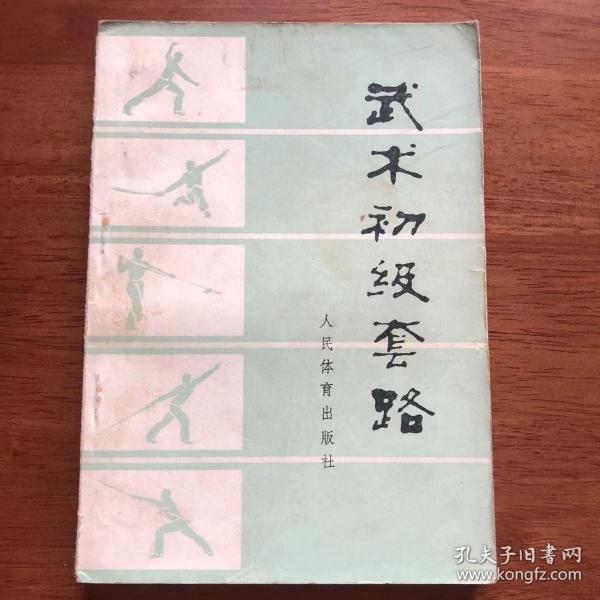 武术初级套路
人民体育出版社
孔夫子旧书网
www.kongfz.com